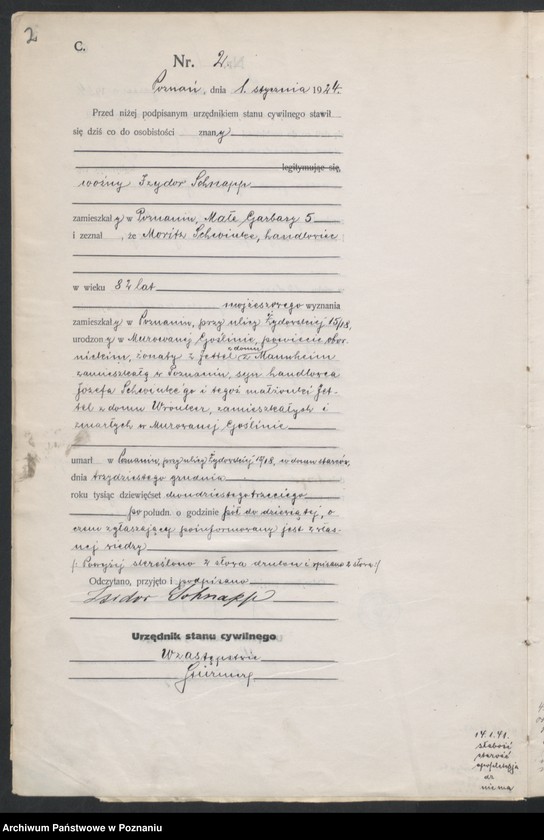 2
C.
Nr. 2.
Poznań, dnia 1. stycznia 1924.
Przed niżej podpisanym urzędnikiem stanu cywilnego stawił
się dziś co do osobistości znany
legitymując się
woźny Izydor Schnapp
zamieszkały w Poznaniu, Małe Garbary 5
i zeznał, że Moritz Schwintec, handlowiec
w wieku 82 lat
mojżeszowego wyznania
zamieszkały w Poznaniu, przy ulicy Żydowskiej 15/18,
urodzony w Murowanej Goślinie, powiecie obor-
nickim, żonaty z Jettel z domu Mannheim
zamieszkałą w Poznaniu, syn handlowca
Józefa Schwintec'go i tegoż małżonki Jet-
tel z domu Wronker, zamieszkałych i
zmarłych w Murowanej Goślinie
umarł w Poznaniu, przy ulicy Żydowskiej 15/18, w domu starców,
dnia trzydziestego grudnia
roku tysiąc dziewięćset dwudziestego trzeciego
po połudn. o godzinie pół do dziesiątej, o
czem zgłaszający poinformowany jest z włas-
nej wiedzy
/: Powyżej skreślono 2 słowa drukow i wpisano 2 słowa:/
Odczytano, przyjęto i podpisano
Isidor Schnapp
Urzędnik stanu cywilnego
W zastępstwie
14.1.41.
słabość
starość
apopleksja
dz
niema
Archiwum Państwowe w Poznaniu